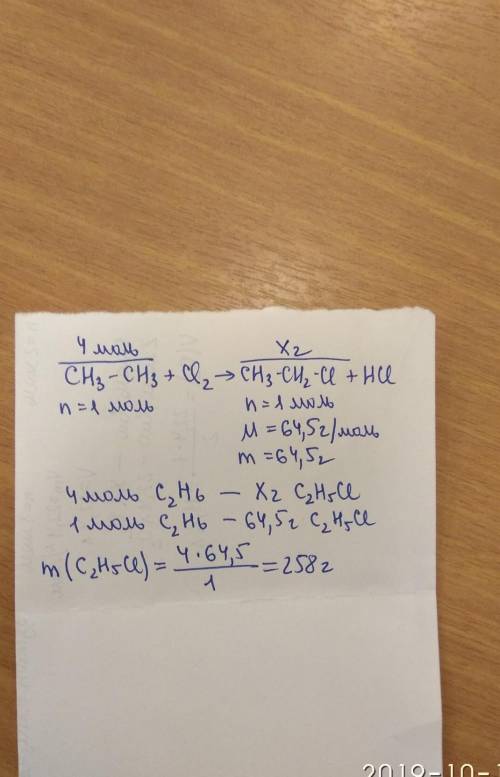 4 моль X г
CH₃-CH₃ + Cl₂ → CH₃-CH₂-Cl + HCl
n = 1 моль n = 1 моль
M = 64,5 г/моль
m = 64,5 г
4 моль C₂H₆ — X г C₂H₅Cl
1 моль C₂H₆ — 64,5 г C₂H₅Cl
m(C₂H₅Cl) = 4·64,5 / 1 = 258 г
2019-10-1